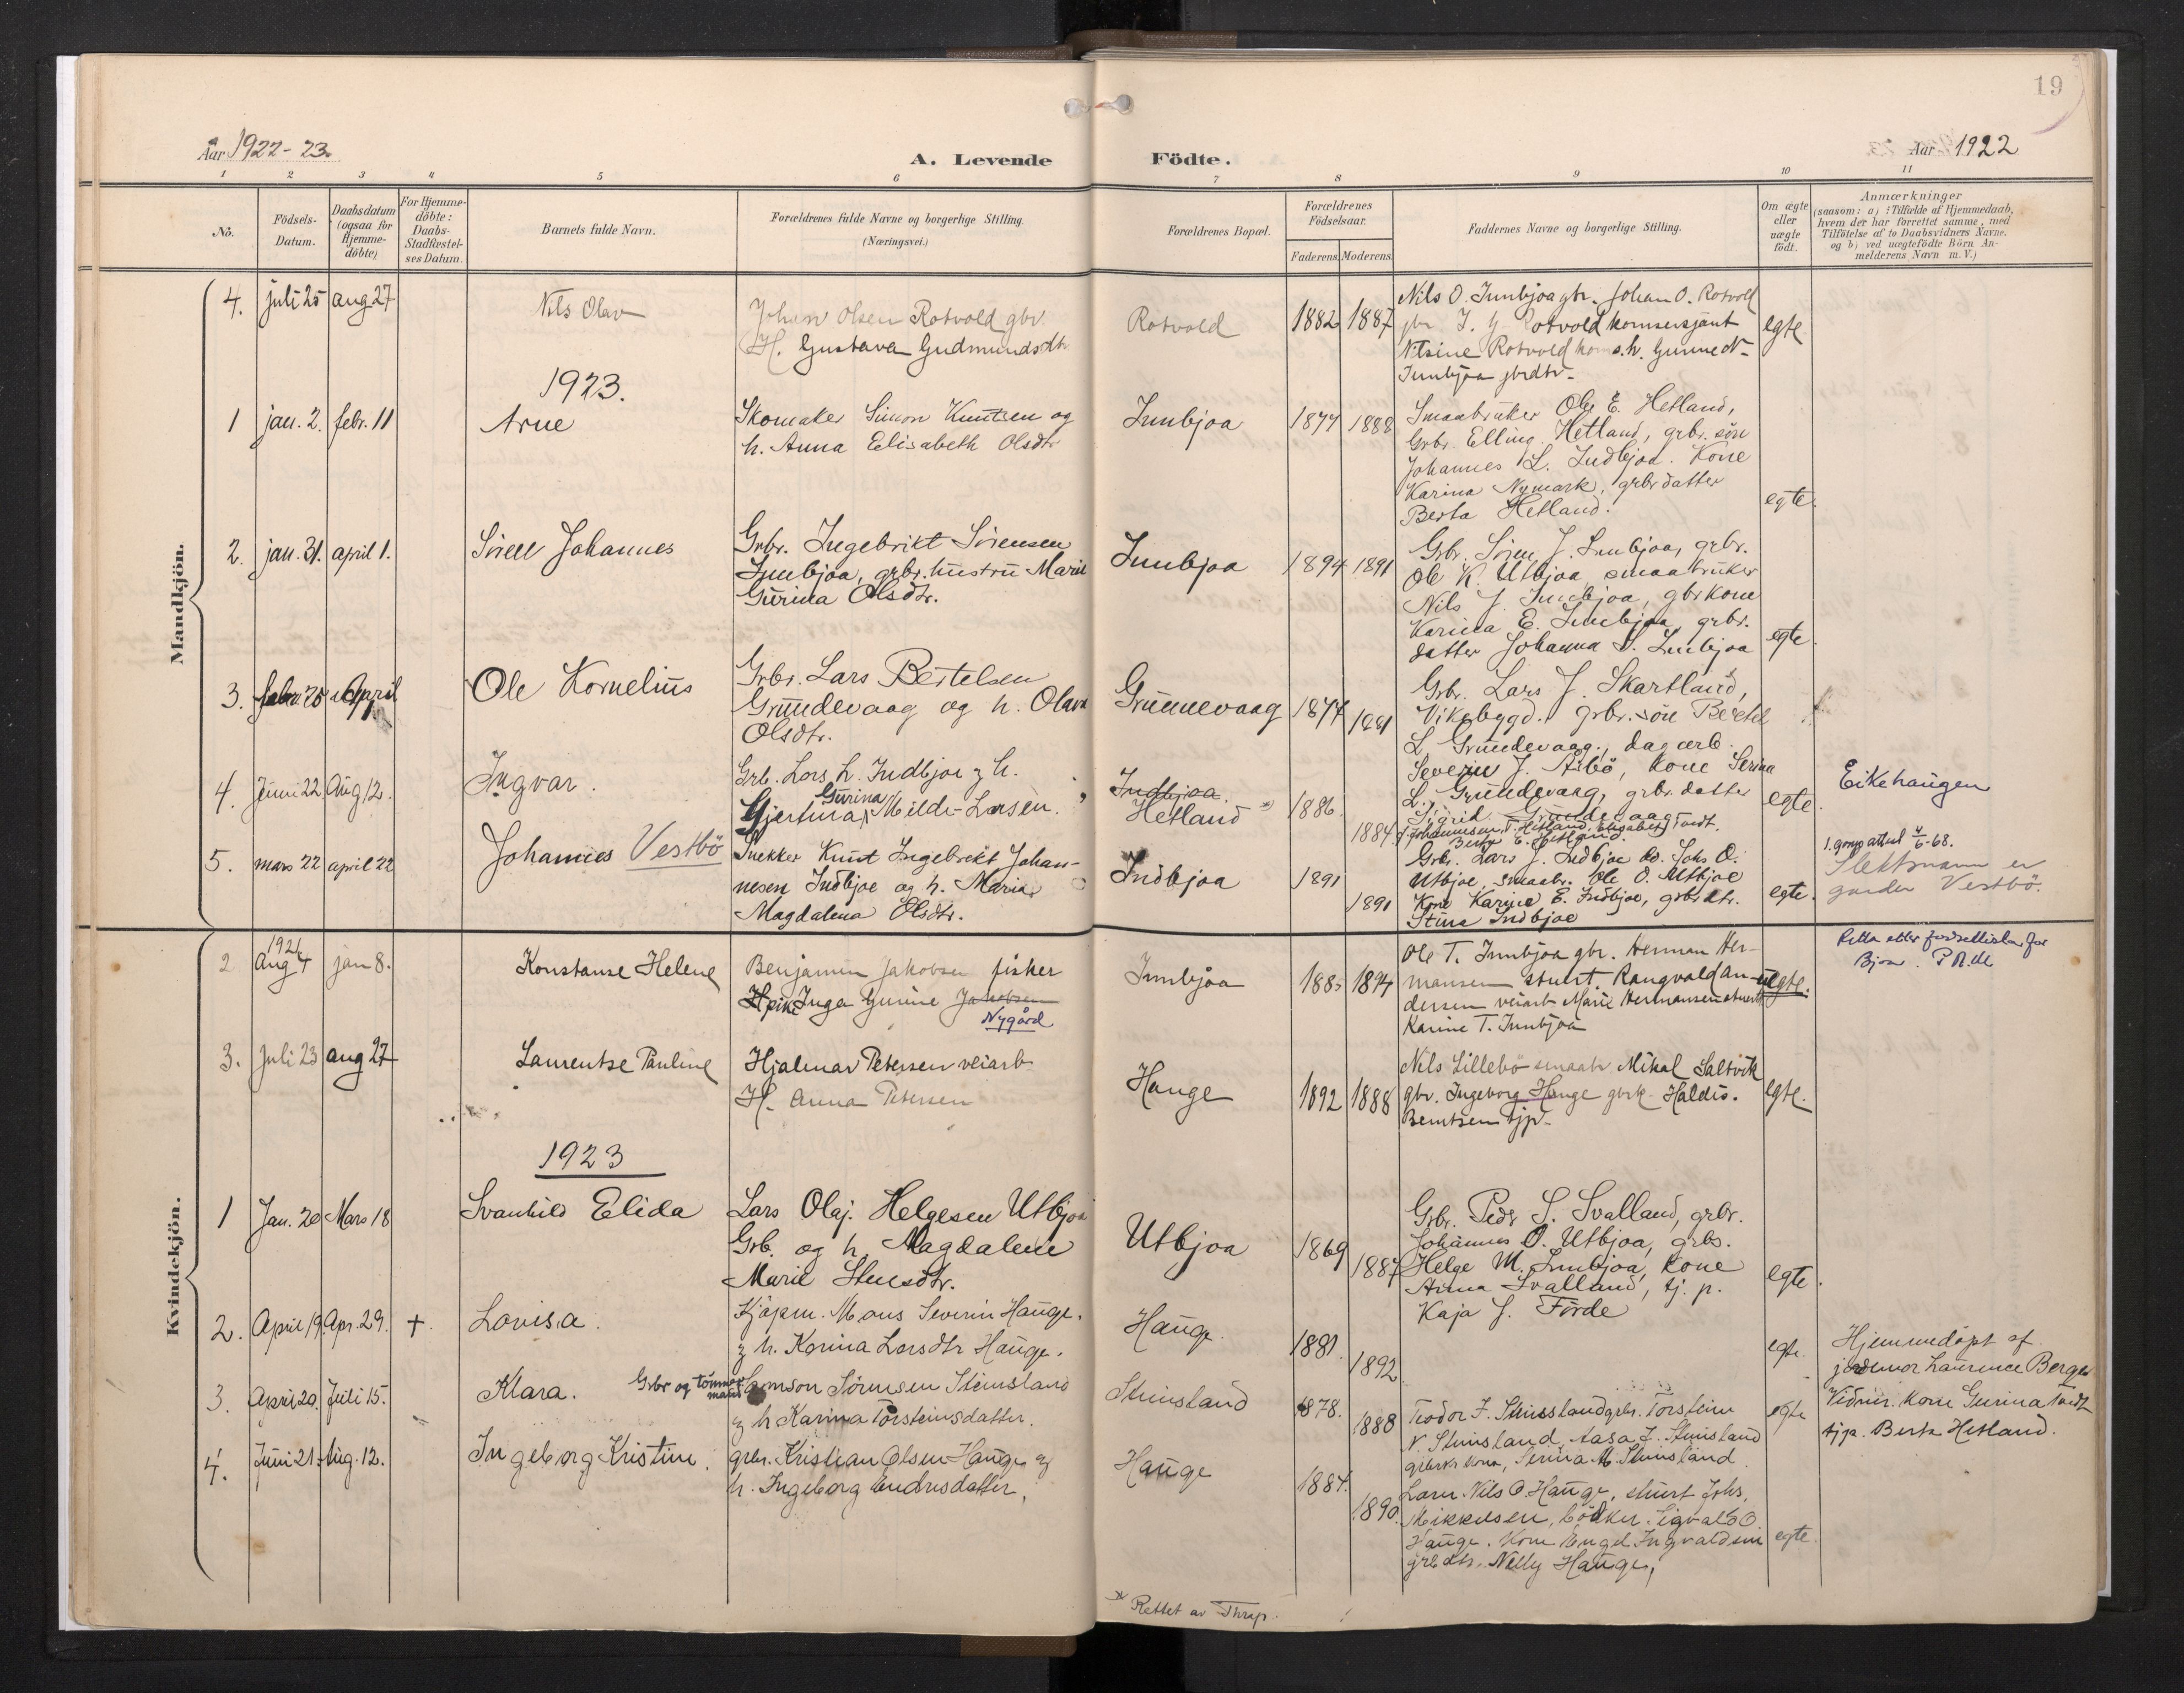 19
Aar 1922-23.
A. Levende Födte.
Aar 1922
1 2 3 4 5 6 7 8 9 10 11
No.
Födsels-Datum.
Daabsdatum (ogsaa for Hjemme-döbte)
For Hjemme-döbte: Daabs-Stadfæstel-ses Datum.
Barnets fulde Navn.
Forældrenes fulde Navne og borgerlige Stilling.
(Næringsvei.)
Forældrenes Bopæl.
Forældrenes Födselsaar.
Faderens. Moderens.
Faddernes Navne og borgerlige Stilling.
Om ægte eller uægte födt.
Anmærkninger
(saasom: a) i Tilfælde af Hjemmedaab,
hvem der har forrettet samme, med
Tilföielse af to Daabsvidners Navne.
og b) ved uægtefödte Börn An-
melderens Navn m. V.)
Mandkjön.
4. juli 25 aug 27 Nils Olav
Johan Olsen Rotvold gbr.
H. Gustava Gudmundsdtr
Rotvold 1882 1887
Nils O. Innbjoa gbr. Johan O. Rotvold
Rotvold
Nilsine Rotvold
Innbjoa gbrdtr.
egte
1923.
1 jan. 2. febr. 11 Arne
Skomaker Simon Knutsen og
h. Anna Elisabeth Olsdtr
Innbjoa 1877 1888
Smaabruker Ole E. Hetland,
Grbr. Elling Hetland, grbr. sön
Johannes L. Indbjoa. Kone
Karina Nymark, grbr datter
Berta Hetland.
egte.
2. jan. 31. april 1. Sören Johannes
Grbr. Ingebrikt Sörensen
Innbjoa, grbr. hustru Marie
Gurina Olsdtr.
Innbjoa 1894 1891
Grbr. Sören J. Innbjoa, grbr.
Ole K. Utbjoa smaabruker
Nils J. Innbjoa, gbr kone
Karina E. Innbjoa, grbr.
datter Johanna S. Innbjoa
egte.
3. febr. 25 April Ole Kornelius
Grbr. Lars Bertelsen
Grundevaag og h. Olava
Olsdtr.
Grunnevaag 1877 1881
Grbr. Lars J. Skartland,
Vikebygd. grbr. sön Bertel
L. Grundevaag, dagarb.
Severin J. Aabö, Kone Serina
L. Grundevaag, grbr. datter
Sigrid Grundevaag
4. Juni 22 Aug 12. Ingvar.
Grb. Lars L. Indbjoe og h.
Gjertina Gurina Milde-Larsen.
Indbjoa.
Hetland * 1886. 1884
Johannesen, T. Hetland, Elisabet Tvedt.
Berta E. Hetland.
egte.
Eikehaugen
5. mars 22 april 22 Johannes Vestbö
Snekker Knut Ingebrikt Johan-
nesen Indbjoe og h. Maria
Magdalena Olsdtr.
Indbjoa 1891 1891
Grbr. Lars J. Indbjoe do. Johs O.
Utbjoe, smaabr. Ole O. Utbjoe
Kone Karine E. Indbjoe, grbrdtr.
Stina Indbjoe
egte.
1. gongs attest 4/6-68.
Slektsnamn er
garden Vestbö.
Kvindekjön.
2 1921 Aug 4 jan 8. Konstanse Helene
Benjamin Jakobsen fisker
H pike Inga Gurine Jakobsen
Nygård
Innbjoa 1894
Ole T. Innbjoa gbr. Herman Her-
mansen stuert. Rangvald An-
dersen veiarb Marie Hermansen
Karine T. Innbjoa
uegte.
Retta etter
3. Juli 23 aug 27 Laurentse Pauline
Hjalmar Petersen veiarb
H. Anna Petersen
Hauge 1892 1888
Nils Lillebö smaabr Mikal Saltvik
gbr. Ingeborg Hauge gbrk. Haldis.
Berntsen tjp.
egte.
1923
1 Jan. 20 Mars 18 Svanhild Elida
Lars Olaj. Helgesen Utbjoa
Grb. og h. Magdalene
Marie Stensdtr.
Utbjoa 1869 1887
Grbr. Peder S. Svalland, grbr.
Johannes O. Utbjoa, grbr.
Helge M. Innbjoa, Kone
Anna Svalland, tj. p.
Kaja J. Förde
egte.
2. April 19. Apr. 29. + Lovisa.
Kjöpm. Mons Severin Hauge.
og h. Karina Larsdtr Hauge.
Hauge. 1881. 1892
egte.
Hjemmedöpt af
jordmor Laurence Berge
Vidner. Kone Gurina Tvedt
tjp. Berta Hetland.
3. April 20. Juli 15. Klara.
Grbr og tömmermand Samson Sörensen Steinsland
og h Karina Torsteinsdatter.
Steinsland 1878. 1888
Teodor J. Steinsland grbr. Torstein
N. Steinsland. Aasa J. Steinsland
Serina M. Steinsland.
egte
4. Juni 21. Aug. 12. Ingeborg Kristine.
grbr. Kristian Olsen Hauge og
h. Ingeborg Endresdatter,
Hauge 1884. 1890.
Nils O. Hauge, stuert Johs.
Mikkelsen, bödker Sigvald O.
Hauge. Kone Engel Ingvaldsen
grbdtr. Nelly Hauge,
egte.
* Rettet av Thrap.